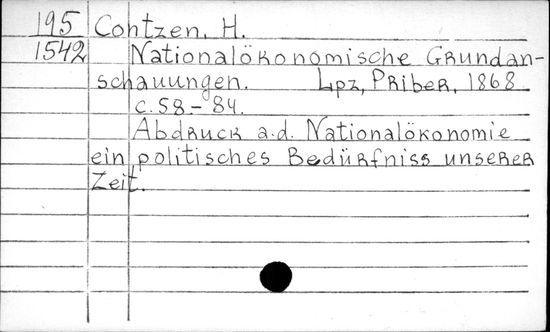 195 Contzen, H.
1542 Nationalökonomische Grundan-
schauungen. Lpz, Priber, 1868
c. 58 - 84.
Abdruck a.d. Nationalökonomie
ein politisches Bedürfniss unserer
Zeit.